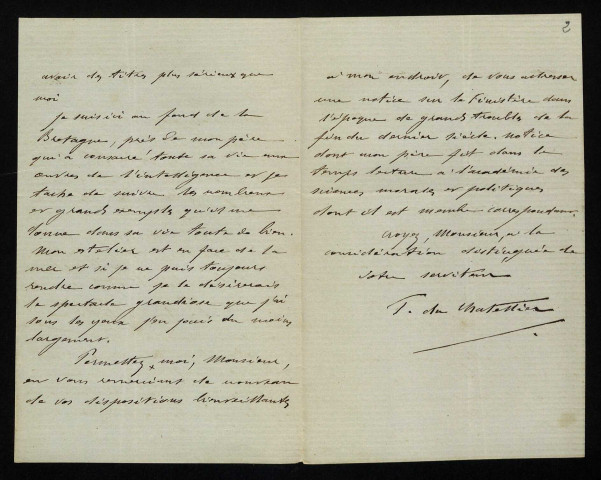 avoir des titres plus sérieux que
moi
je suis ici au fond de la
Bretagne, près de mon père
qui a consacré toute sa vie aux
œuvres de l'intelligence et je
tache de suivre les nombreux
et grands exemples qu'il me
donne dans sa vie toute de bien.
Mon atelier est en face de la
mer et si je ne puis toujours
rendre comme je le désirerais
le spectacle grandiose que j'ai
sous les yeux j'en jouis du moins
largement.
Permettez moi, Monsieur,
en vous remerciant de nouveau
de vos dispositions bienveillantes
2
à mon endroit, de vous adresser
une notice sur le Finistère dans
l'époque de grands troubles de la
fin du dernier siècle. notice
dont mon père fit dans le
temps lecture à l'académie des
sciences morales et politiques
dont il est membre correspondant.
Croyez, Monsieur, à la
considération distinguée de
votre serviteur
P. du Chatellier